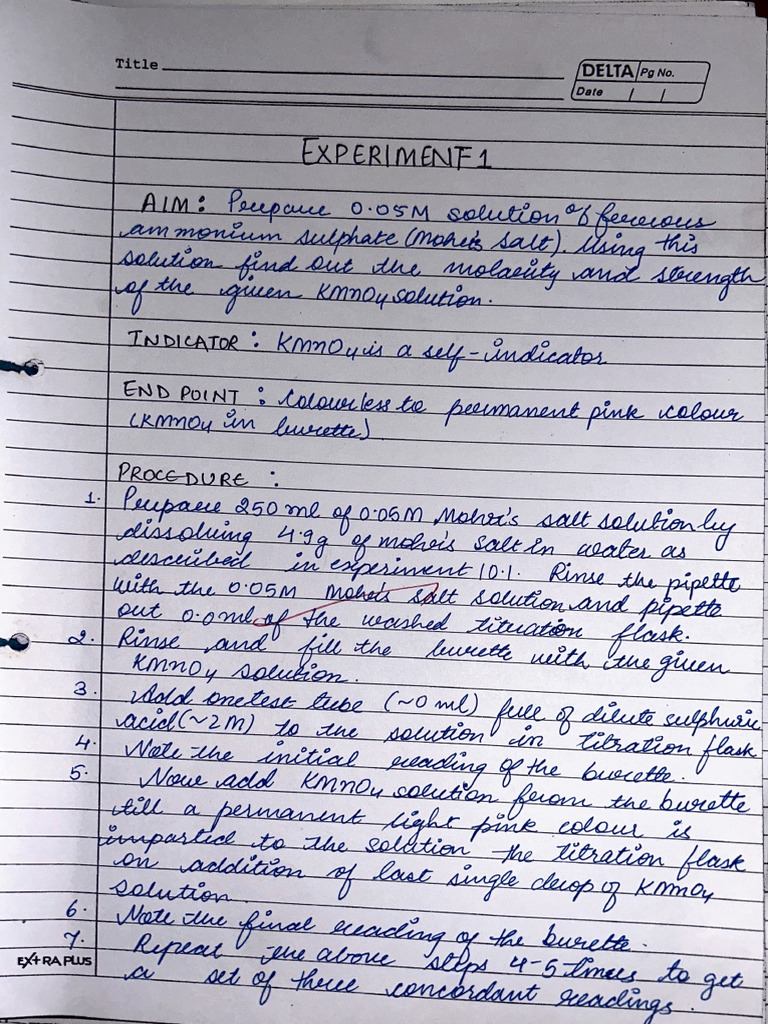 Title
DELTA Pg No.
Date / /
EXPERIMENT 1
AIM: Prepare 0.05M solution of ferrous
ammonium sulphate (Mohr's salt). Using this
solution find out the molarity and strength
of the given KMnO4 solution.
INDICATOR: KMnO4 is a self-indicator
END POINT: Colourless to permanent pink colour
(KMnO4 in burette)
PROCEDURE:
1. Prepare 250 ml of 0.05M Mohr's salt solution by
dissolving 4.9g of mohr's salt in water as
described in experiment 10.1. Rinse the pipette
with the 0.05M Mohr's salt solution and pipette
out 0.0ml of the washed titration flask.
2. Rinse and fill the burette with the given
KMnO4 solution.
3. Add one test tube (~0 ml) full of dilute sulphuric
acid (~2M) to the solution in titration flask
4. Note the initial reading of the burette.
5. Now add KMnO4 solution from the burette
till a permanent light pink colour is
imparted to the solution the titration flask
on addition of last single drop of KMnO4
solution.
6. Note the final reading of the burette.
7. Repeat the above steps 4-5 times to get
a set of three concordant readings.
EXTRA PLUS